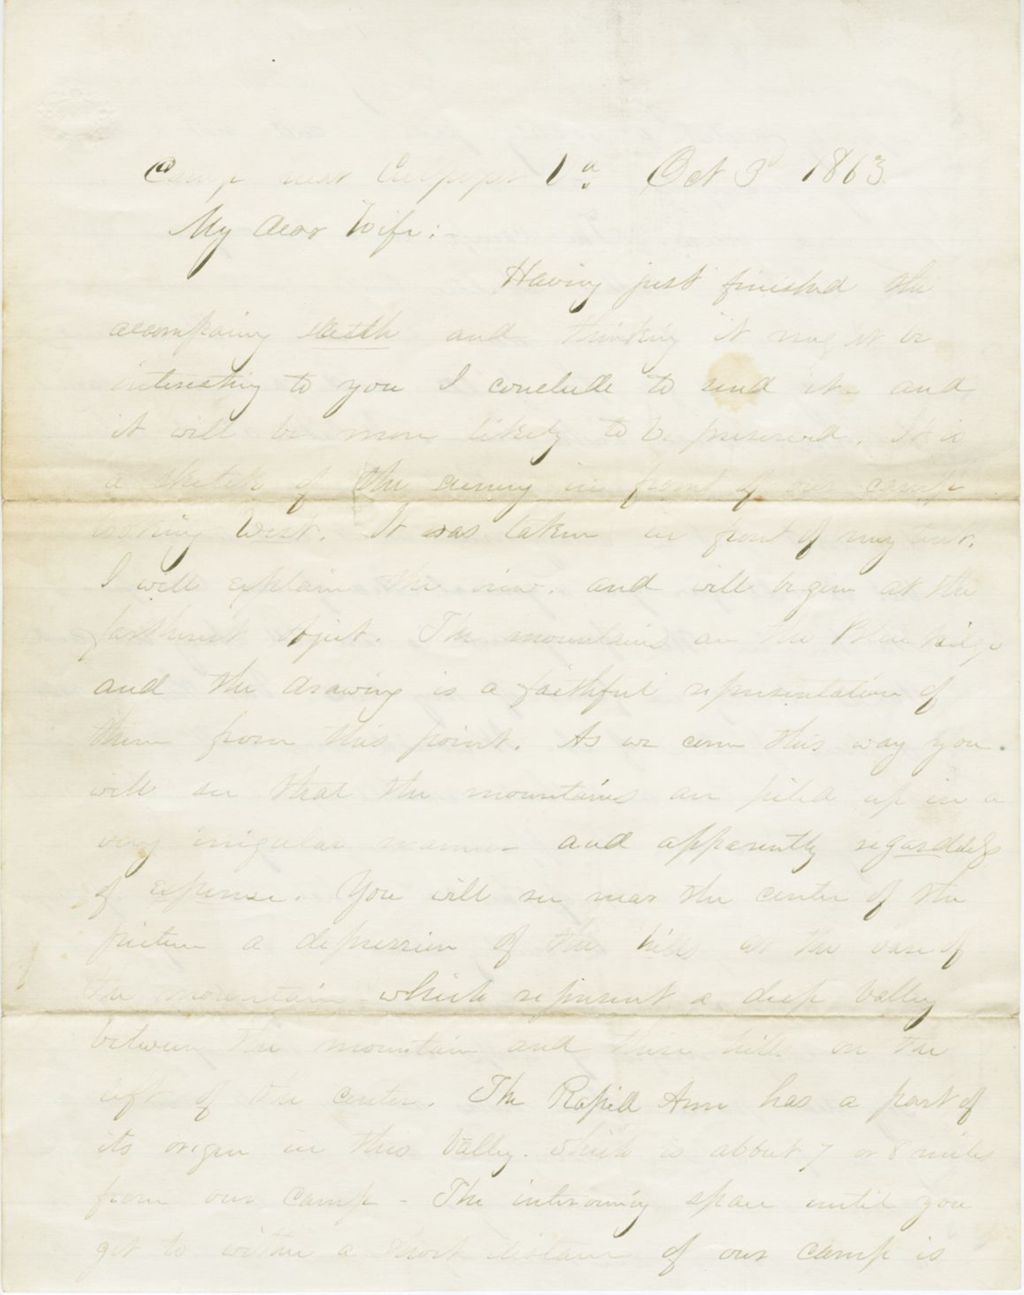 Camp near Culpeper Va. Oct 3d 1863.
My Dear Wife:-
Having just finished the
accompaing sketch and thinking it might be
interesting to you I conclude to send it. and
it will be more likely to be preserved. It is
a sketch of the scenery in front of our camp
looking West. It was taken in front of my tent.
I will explain the view. and will begin at the
farthest object. The mountains are the Blue Ridge
and the drawing is a faithful representation of
them from this point. As we come this way you
will see that the mountains are piled up in a
very irregular manner and apparently regardless
of expense. You will see near the center of the
picture a depression of the hills at the base of
the mountain which represent a deep valley
between the mountain and these hills on the
left of the center. The Rapid Ann has a part of
its origin in this Valley. which is about 7 or 8 miles
from our camp - The intervening space until you
get to within a short distance of our camp is